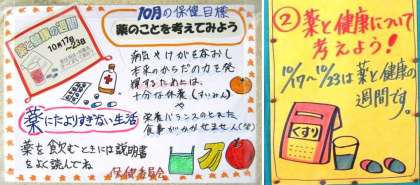 10月の保健目標
薬のことを考えてみよう
薬と健康の週間
10月17日
23日
病気やけがをなおし
本来のからだの力を発
揮するためには、
十分な休養(すいみん)
や
栄養バランスのとれた
食事がかかせません(栄)
薬にたよりすぎない生活
薬を飲むときには説明書
をよく読んでね
保健委員会
②薬と健康について
考えよう!
10/17〜10/23は薬と健康の
週間です。
くすり